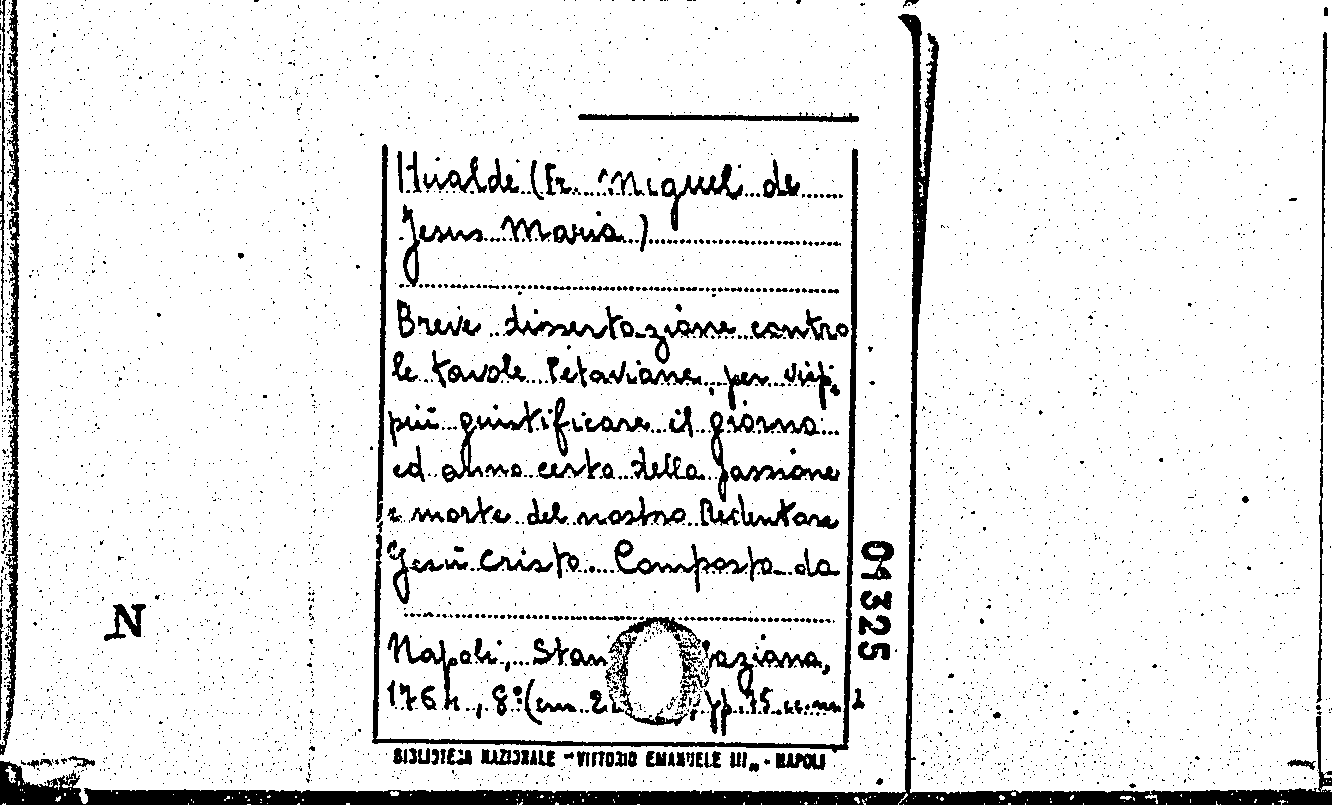 (Fr. Miguel de
Jesus Maria)
Breve dissertazione contro
le tavole Petaviane, per viep.
più giustificare il giorno
ed anno certo della passione
e morte del nostro Redentore
Gesù Cristo. Composta da
Napoli, Stam
1764, 8° (cm 2 pp. 15
BIBLIOTECA NAZIONALE "VITTORIO EMANUELE III" - NAPOLI
01325
N